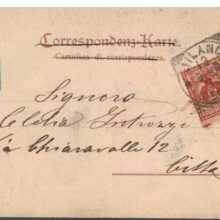 Correspondenz-Karte.
Cartolina di corrispondenza.
MILANO
Signora
Introzzi
Via Chiaravalle 12
Città